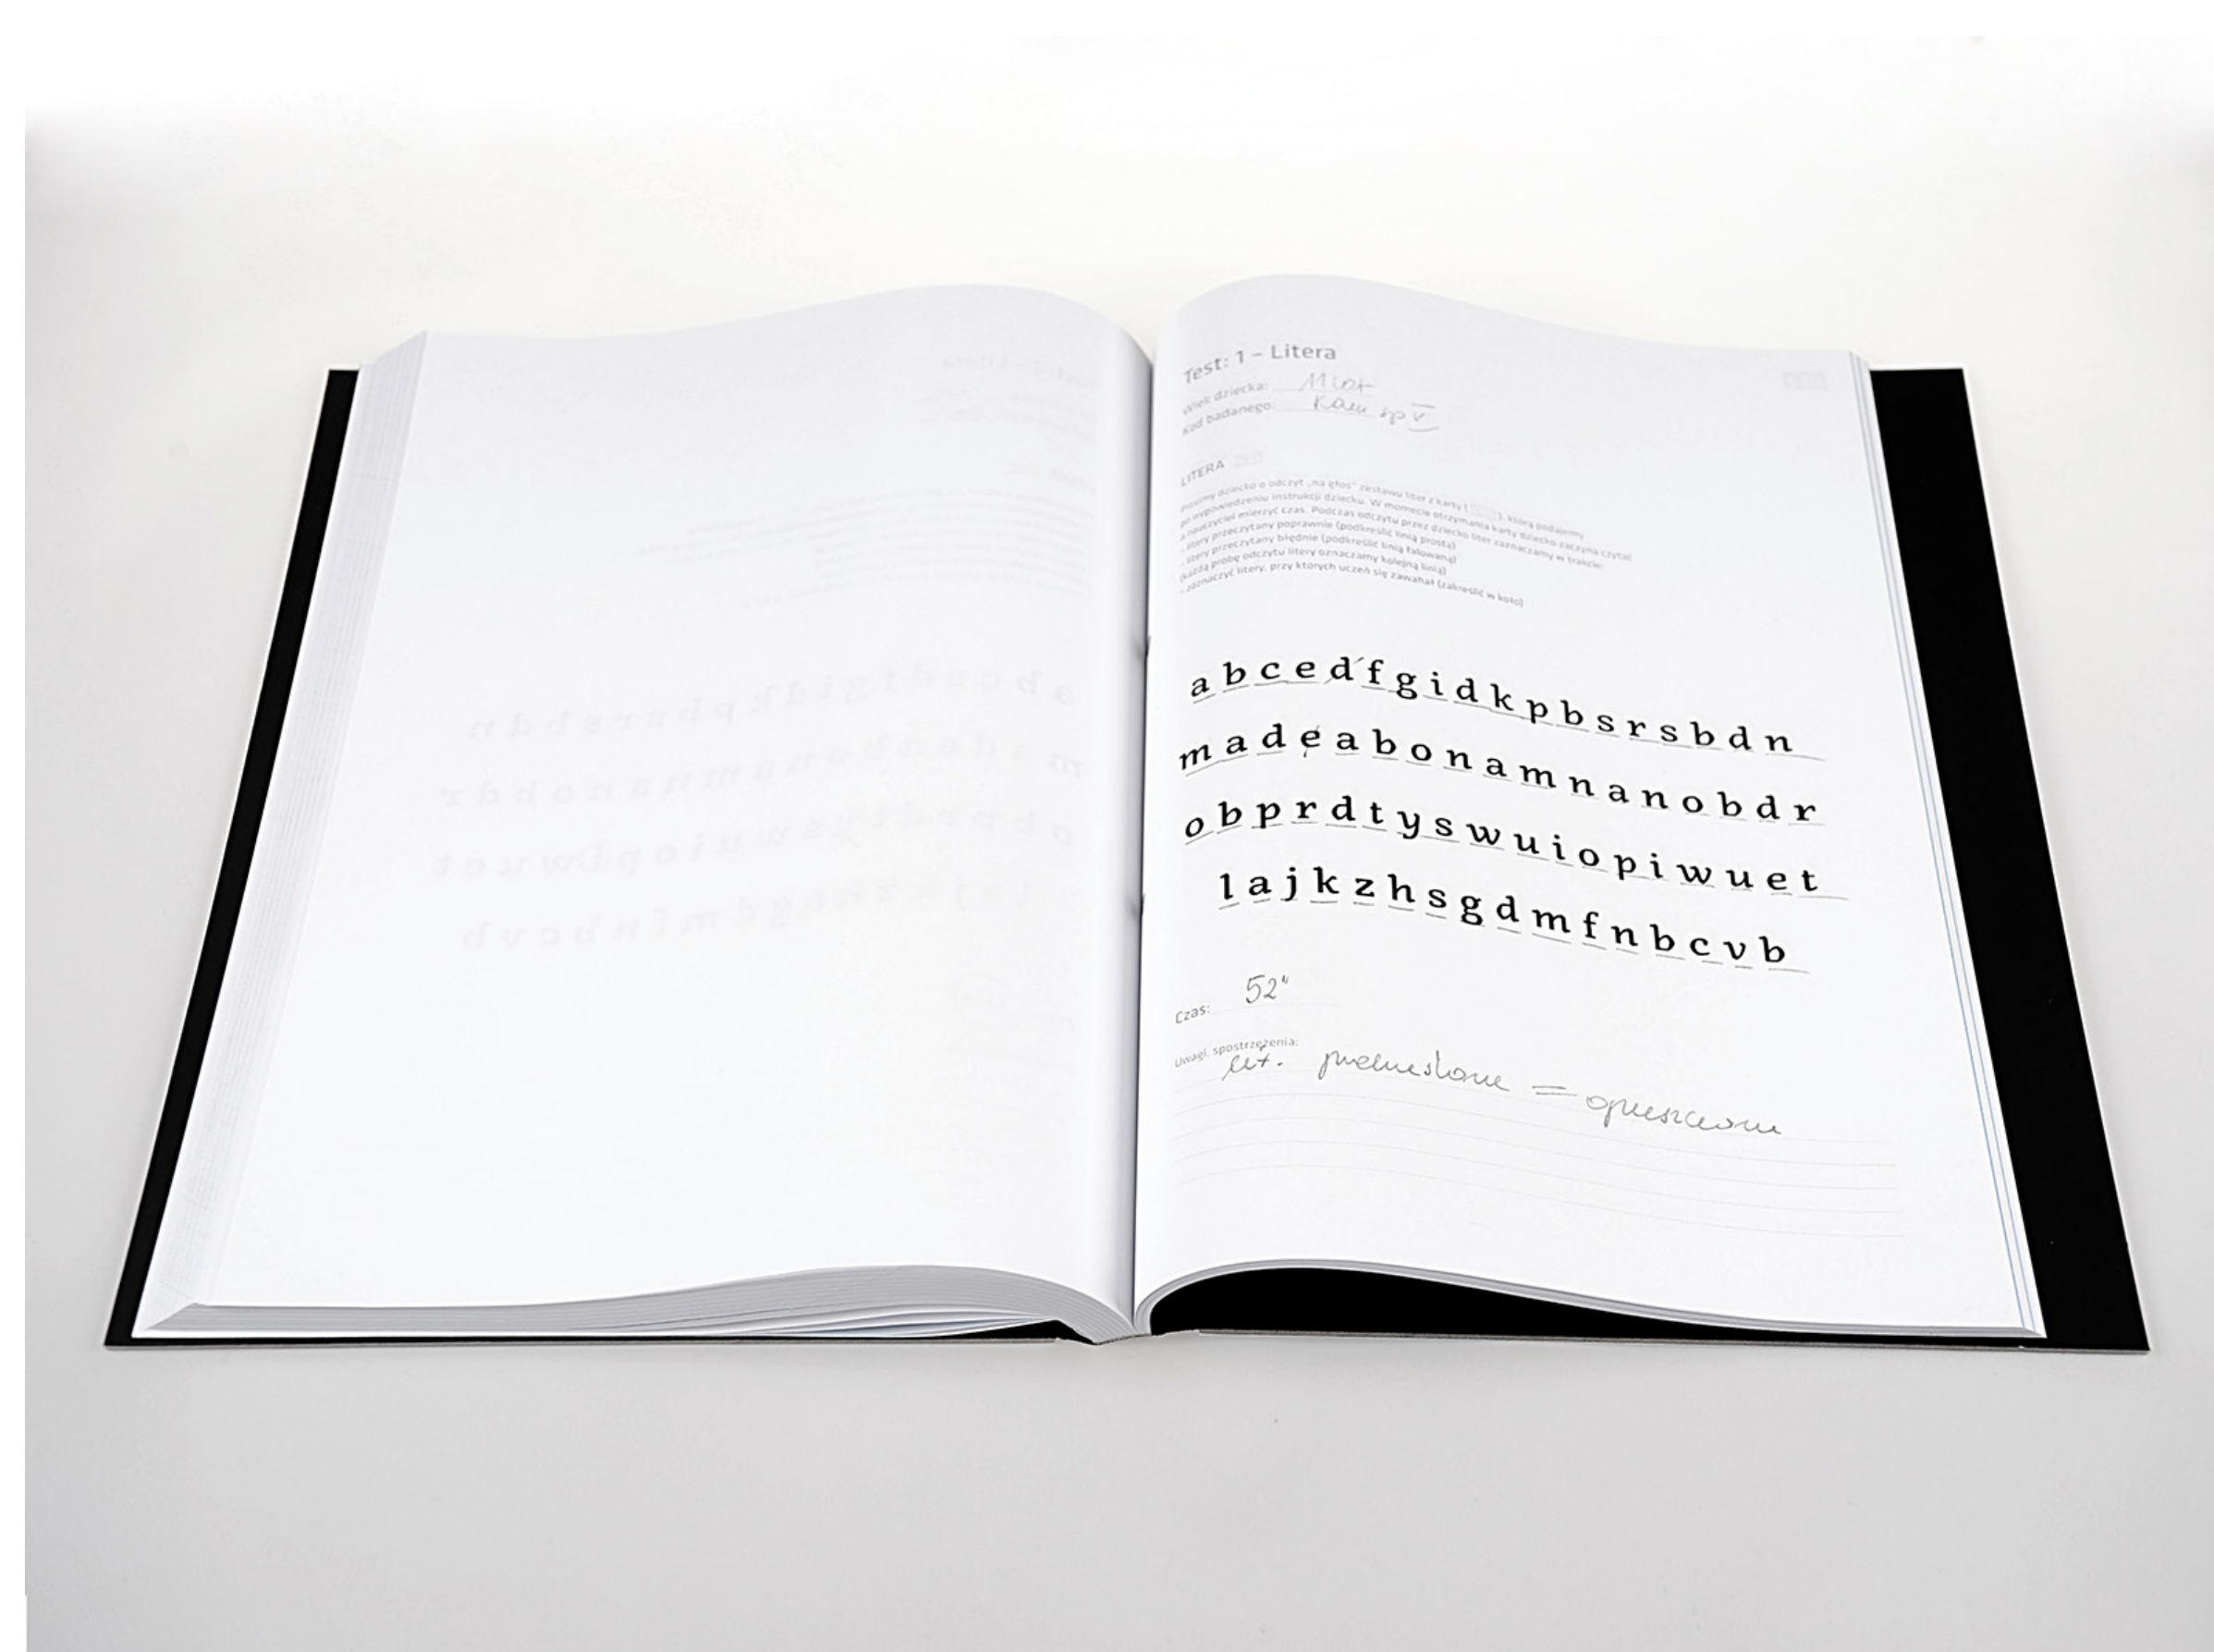 Test: 1 – Litera
Wiek dziecka: 11 lat
Kod badanego: Kam sp V
LITERA
Prosimy dziecko o odczyt „na głos” zestawu liter z karty ( ), którą podajemy
po wypowiedzeniu instrukcji dziecku. W momecie otrzymania karty dziecko zaczyna czytać
a nauczyciel mierzyć czas. Podczas odczytu przez dziecko liter zaznaczamy w trakcie:
- litery przeczytany poprawnie (podkreslić linią prostą)
- litery przeczytany błędnie (podkreślić linią falowaną)
(każdą probę odczytu litery oznaczamy kolejną linią)
- zaznaczyć litery, przy których uczeń się zawahał (zakreślić w koło)
a b c e d f g i d k p b s r s b d n
m a d e a b o n a m n a n o b d r
o b p r d t y s w u i o p i w u e t
l a j k z h s g d m f n b c v b
Czas: 52"
Uwagi, spostrzeżenia:
lit. przekreślone = opuszczone